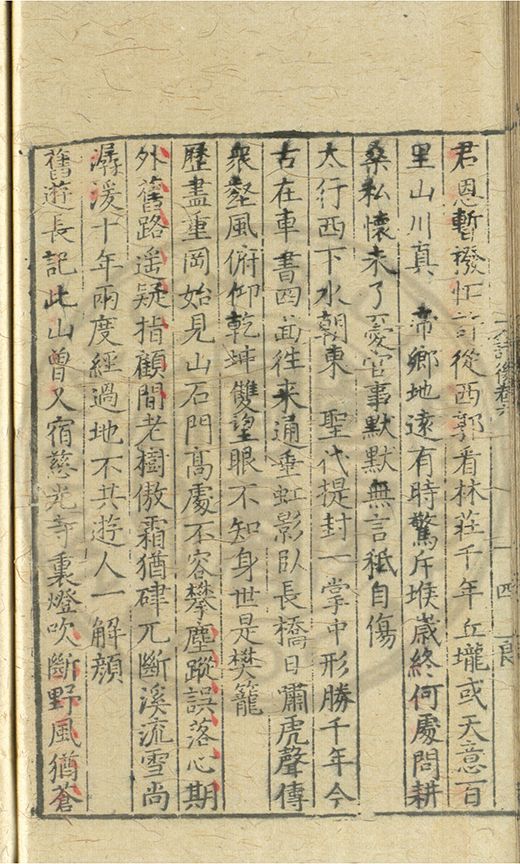 君恩暫撥忙許從西郭看林莊千年丘壠或天意百
里山川真　帝鄉地遠有時驚斥堠歲終何處問耕
桑私懷未了憂官事默默無言秪自傷
太行西下水朝東　聖代提封一掌中形勝千年今
古在車書四面徃來通垂虹影臥長橋日嘯虎聲傳
衆壑風俯仰乾坤雙望眼不知身世是樊籠
歷盡重岡始見山石門髙處不容攀塵蹤誤落心期
外舊路遥疑指顧間老樹傲霜猶硉兀斷溪流雪尚
潺湲十年兩度經過地不共遊人一解顔
舊遊長記此山曾又宿慈光寺裏燈吹斷野風猶蒼